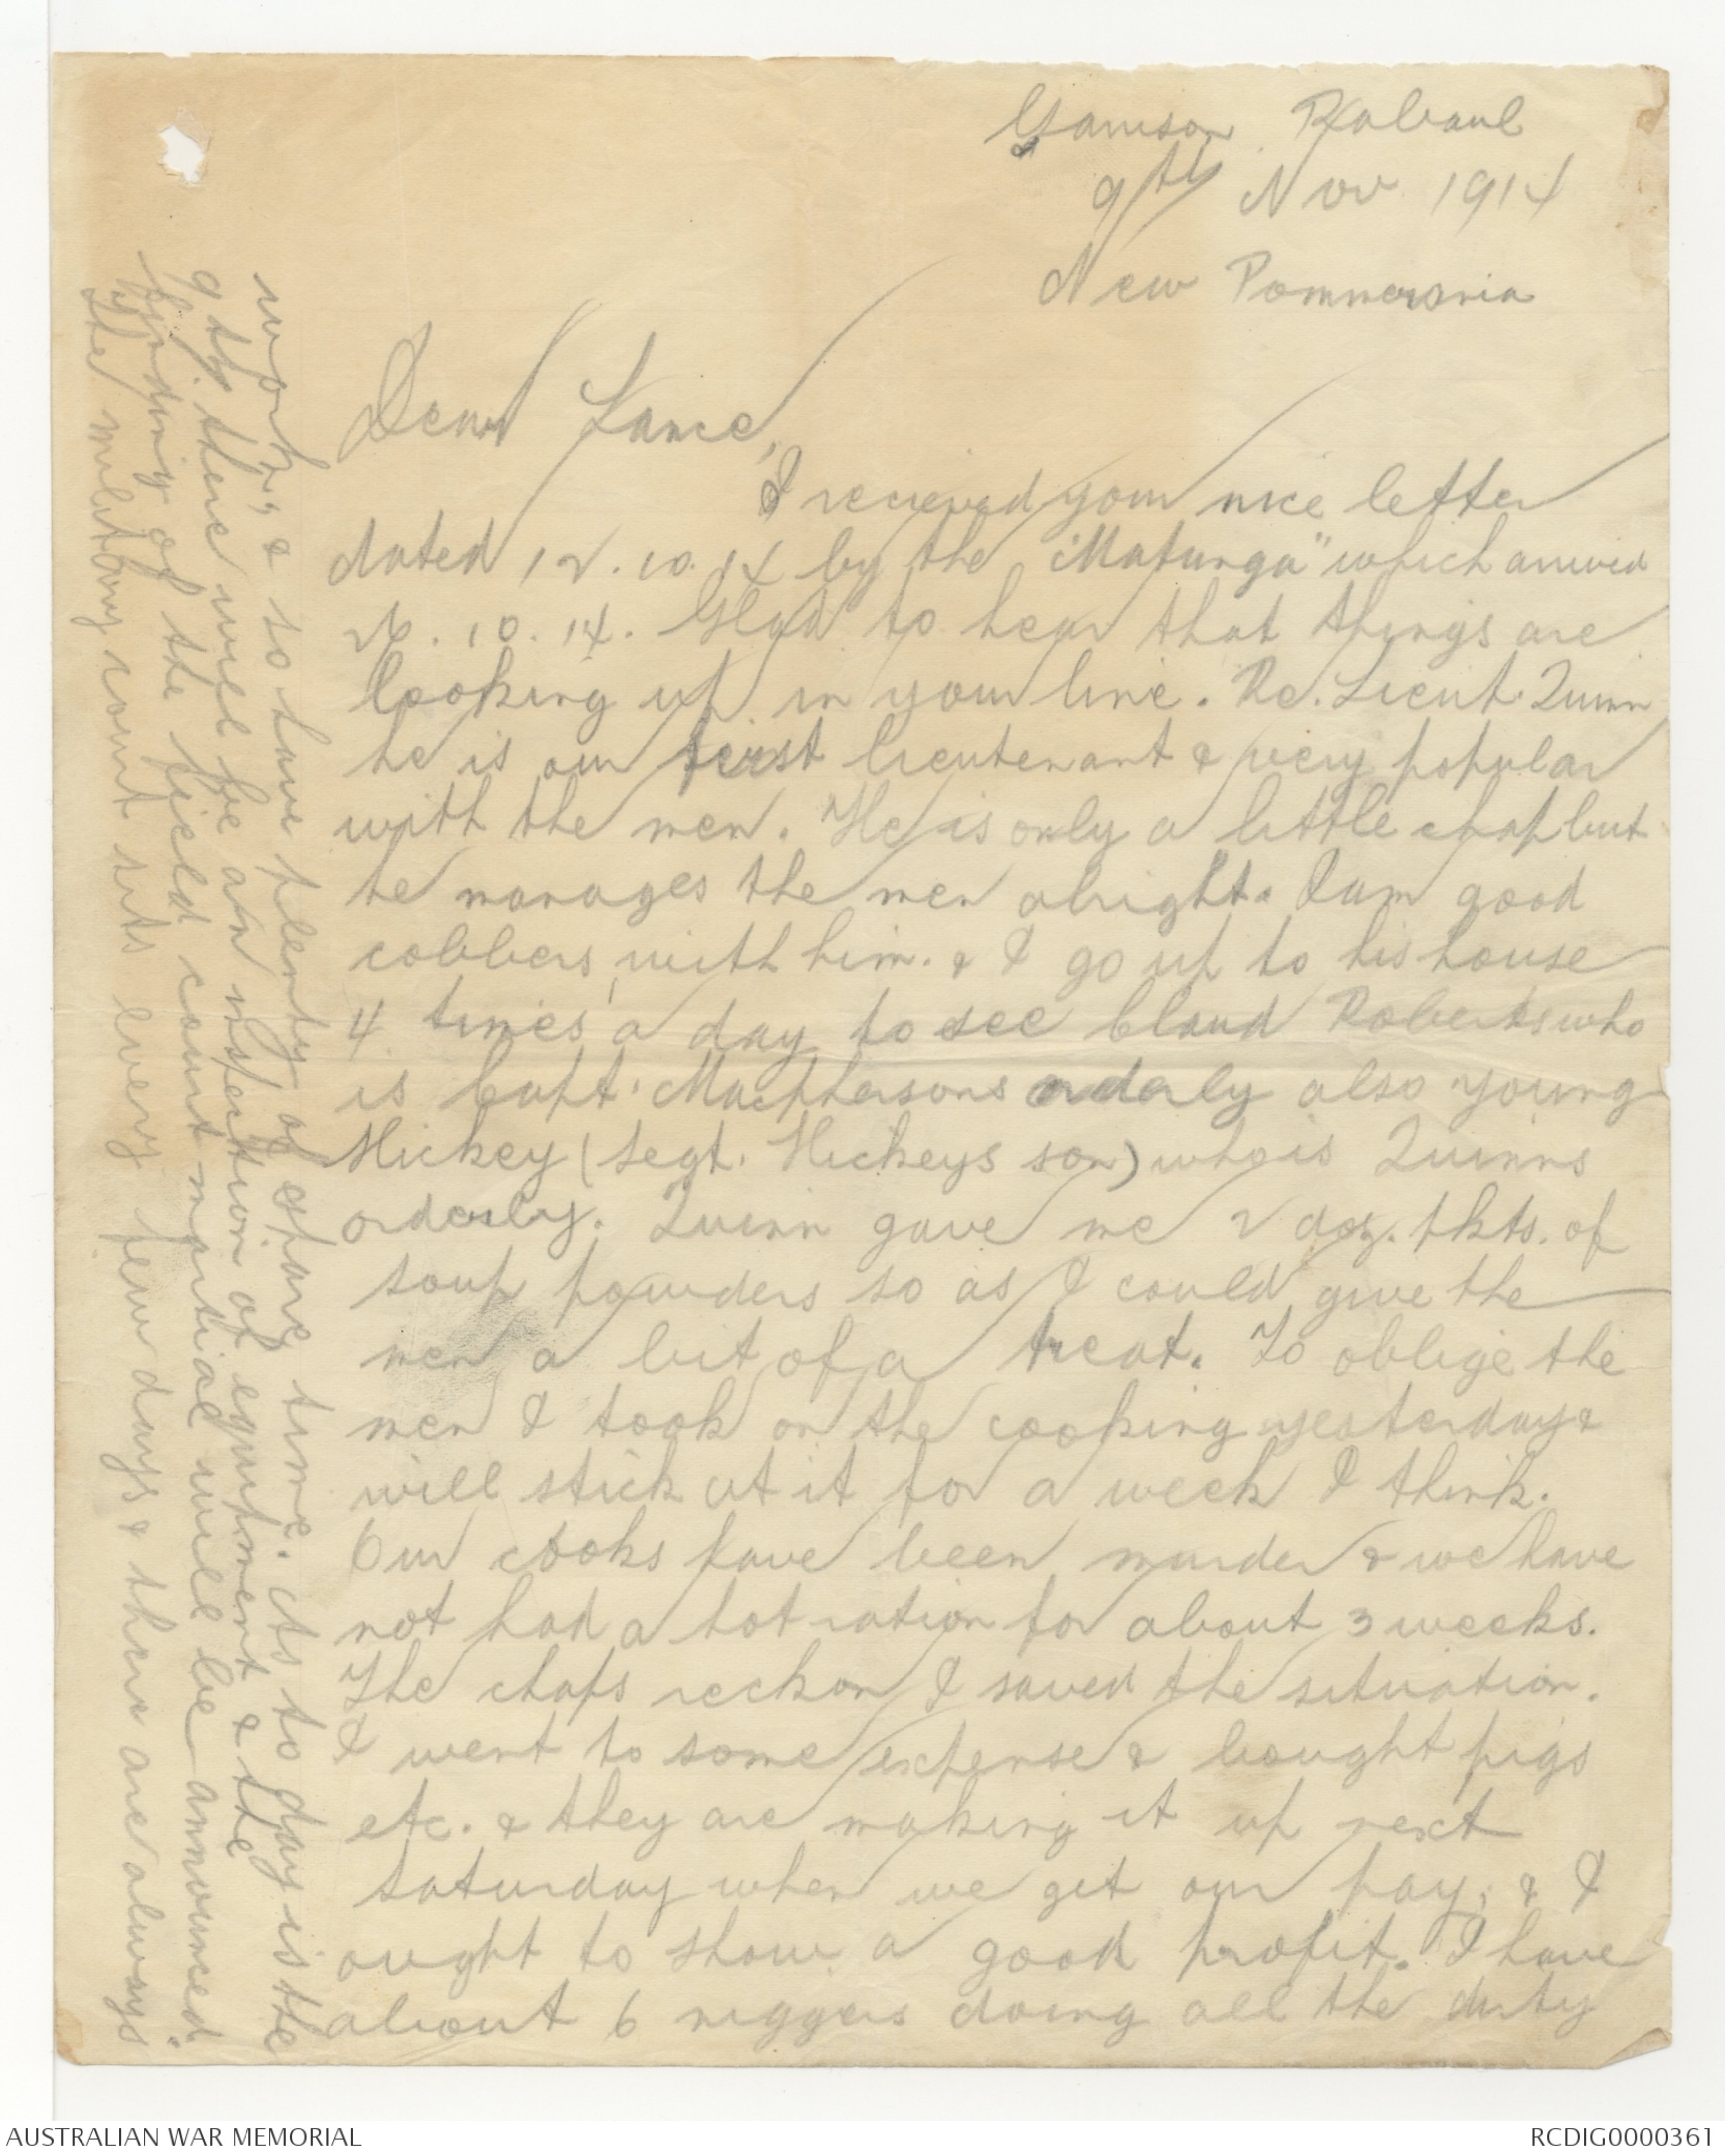 Garrison Rabaul
9th Nov 1914
New Pommerania
Dear Lance,
I recieved your nice letter
dated 12.10.14 by the "Matunga" which arrived
26.10.14. Glad to hear that things are
looking up in your line. Re. Lieut. Quinn
he is our first lieutenant & very popular
with the men. He is only a little chap but
he manages the men alright. I am good
cobbers with him. & I go up to his house
4 times a day to see Claud Roberts who
is Capt. Macphersons orderly also young
Hickey (segt. Hickeys son) who is Quinns
orderly. Quinn gave me 2 doz. pkts. of
soup powders so as I could give the
men a bit of a treat. To oblige the
men I took on the cooking yesterday &
will stick at it for a week I think.
Our cooks have been murder & we have
not had a hot ration for about 3 weeks.
The chaps reckon I saved the situation.
I went to some expense & bought pigs
etc. & they are making it up next
saturday when we get our pay, & I
ought to show a good profit. I have
about 6 niggers doing all the dirty
work, & so have plenty of spare time. As to day is the
9th. there will be an inspection of equipment & the
finding of the field court martial will be announced.
The military court sits every few days & there are always
AUSTRALIAN WAR MEMORIAL
RCDIG0000361